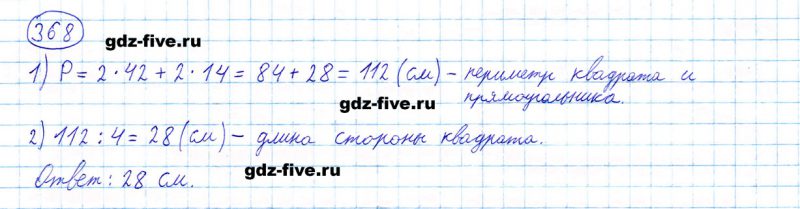 368
gdz-five.ru
1) P = 2 · 42 + 2 · 14 = 84 + 28 = 112 (см) – периметр квадрата и
прямоугольника.
gdz-five.ru
2) 112 : 4 = 28 (см) – длина стороны квадрата.
Ответ: 28 см.
gdz-five.ru